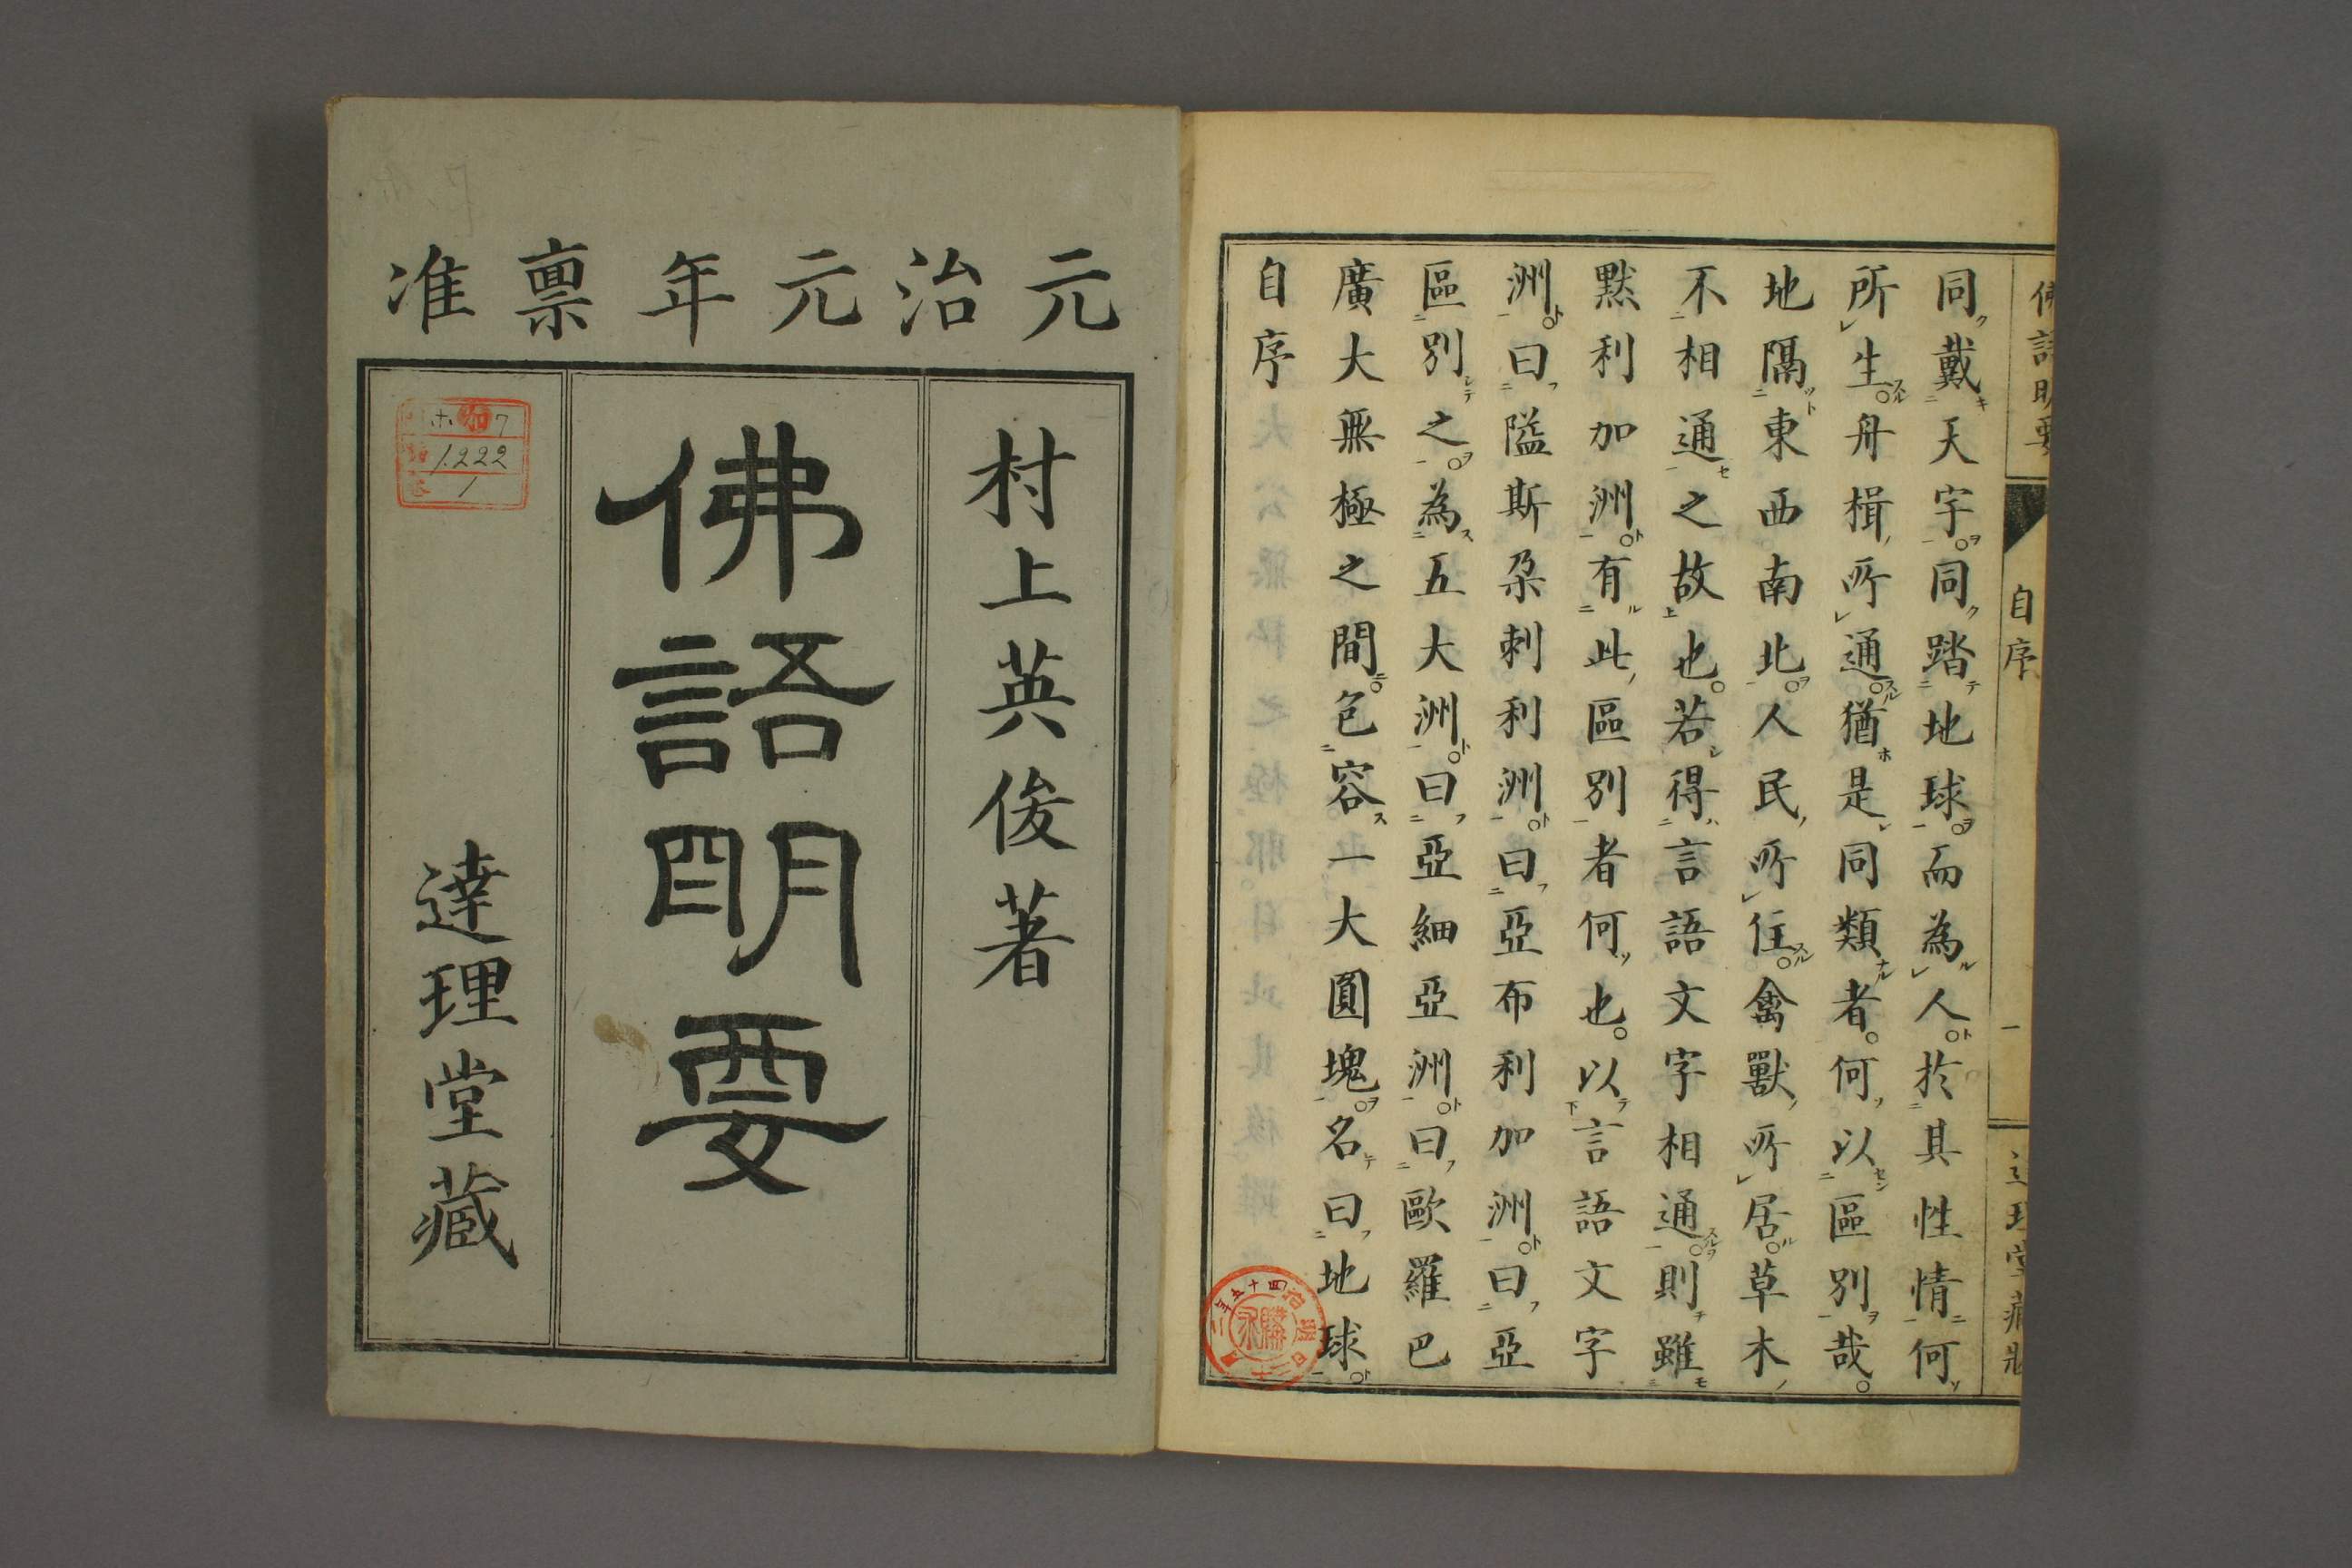 元治元年稟准
村上英俊著
佛語明要
達理堂藏
1222
1
自序
廣大無極之間包容一大圓塊名曰地球
區別之為五大洲曰亞細亞洲曰歐羅巴
洲曰隘斯朶剌利洲曰亞布利加洲曰亞
默利加洲有此區別者何也以言語文字
不相通之故也若得言語文字相通則雖
地隔東西南北人民所住禽獸所居草木
所生舟楫所通猶是同類者何以區別哉
同戴天宇同踏地球而為人於其性情何
佛語明要
自序
一